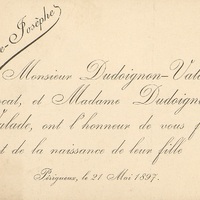 e-Josèphe
Monsieur Dudoignon-Vala
ocat, et Madame Dudoigno
Valade, ont l'honneur de vous f
t de la naissance de leur fille
Périgueux, le 21 Mai 1897.